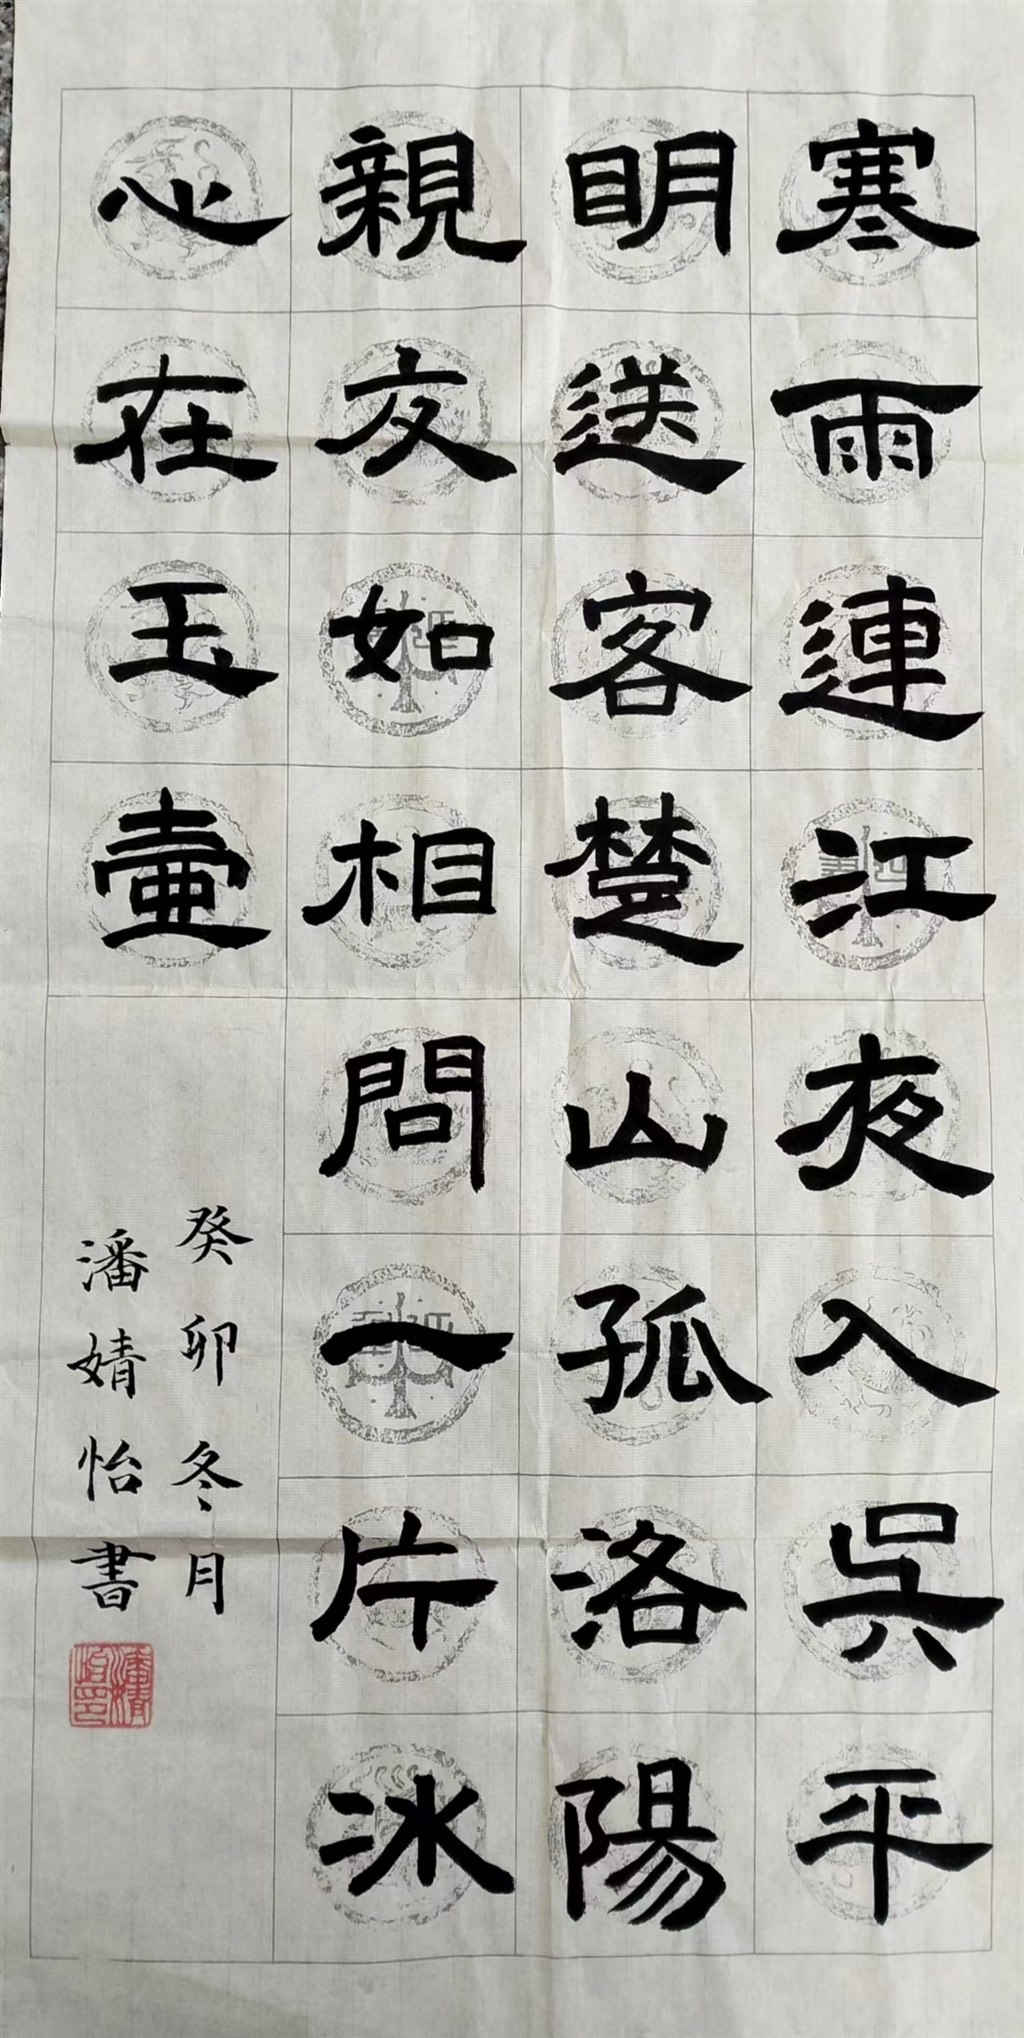 寒雨連江夜入吳平
明送客楚山孤洛陽
親友如相問一片冰
心在玉壺
癸卯冬月
潘婧怡書